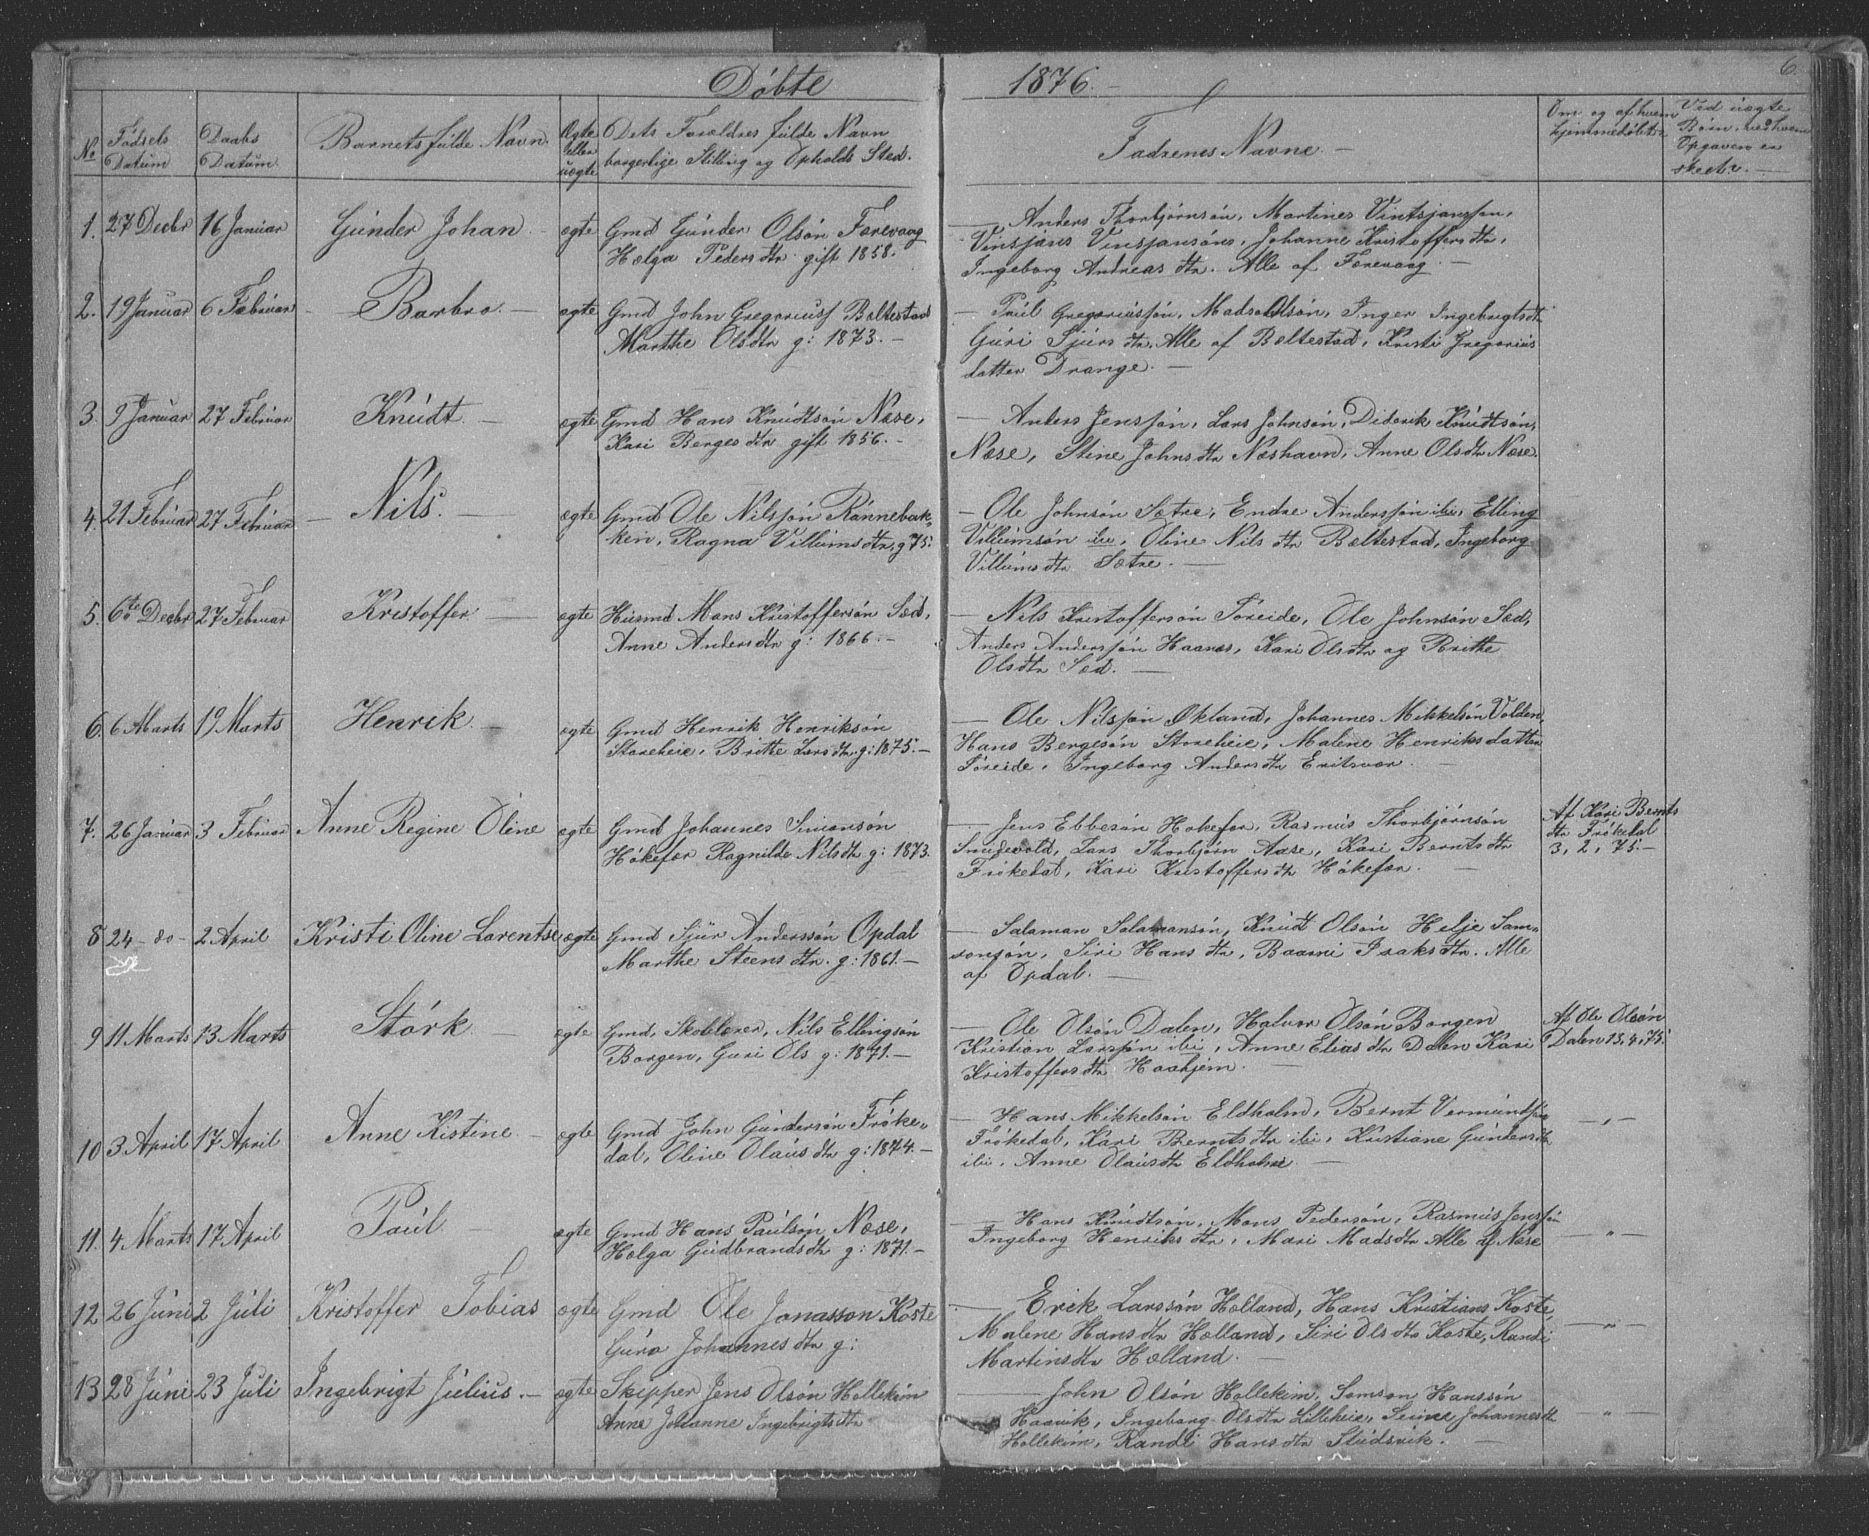 Döbte 1876. 6.
No Födsels Datum Daabs Datum Barnets fulde Navn. Ægte eller uægte Dets Forældres fulde Navn borgerlige Stilling og Opholds Sted. Fadrenes Navne. Om og af hvem hjemmedöbt Ved uægte Börn, ved hvem Opgaven er skeet
1. 27 Decbr 16 Januar Gunder Johan ægte Gmd Gunder Olsön Færevaag
Helga Pedersdtr gift 1858.
Anders Thorbjörnsön, Martines Vintsjansson,
Vinsjans Vinsjansöns, Johanne Kristoffersdtr,
Ingeborg Andreasdtr. Alle af Færevaag
2. 19 Januar 6 Februar Barbro ægte Gmd John Gregoriuss Beltestad
Marthe Olsdtr g: 1873.
Paul Gregoriussön, Mads Olsön, Inger Ingebrigtsdtr
Guri Sjursdtr, Alle af Beltestad, Kristi Gregorius
datter Drange.
3. 9 Januar 27 Februar Knudt ægte Gmd Hans Knudtsön Næse,
Kari Bergesdtr gift 1856.
Anders Jenssön, Lars Johnsön, Diderik Knudtsön,
Næse, Stine Johnsdtr Næshavn, Anne Olsdtr Næse
4. 21 Februar 27 Februar Nils. ægte Gmd Ole Nilssön Rönnebak-
ken, Ragna Villumsdtr, g 75.
Ole Johnsön Sætre, Endre Anderssön ibi, Elling
Villumsön ibi, Oline Nilsdtr Beltestad, Ingeborg
Villumsdtr Sætre.
5. 6te Decbr 27 Februar Kristoffer ægte Husmd Mons Kristoffersön Sæd,
Anne Andersdtr g: 1866.
Nils Kristoffersön Söreide, Ole Johnsön Sæd,
Anders Anderssön Haanes, Kari Olsdtr og Brithe
Olsdtr Sæd.
6. 6 Marts 19 Marts Henrik. ægte Gmd Henrik Henriksön
Storeheie, Brithe Larsdtr. g: 1875.
Ole Nilssön Økland, Johannes Mikkelsön Volden,
Hans Bergesön Storeheie, Malene Henriksdatter
Söreide, Ingeborg Andersdtr Eritsvær.
7. 26 Januar 3 Februar Anne Regine Oline ægte Gmd Johannes Simonsön
Hökefær Ragnilde Nilsdtr g: 1873.
Jens Ebbesön Hokefær, Rasmus Thorbjörnsön
Lars Thorbjörn Aase, Kari Berntsdtr
Frökedal, Kari Kristoffersdtr Hökefær.
Af Kari Bernts
dtr Frökedal
3, 2, 75.
8 24 - do - 2 April Kristi Oline Lorentse ægte Gmd Sjur Anderssön Opdal
Marthe Steensdtr. g: 1861.
Salaman Salamansön, Knudt Olsön Helje Sam-
sonsön, Siri Hansdtr, Baarni Isaksdtr. Alle
af Opdal.
9 11 Marts 13 Marts Störk ægte Gmd, Skoblærer, Nils Ellingsön
Borgen, Guri Ols g: 1871.
Ole Olsön Dalen, Halvor Olsön Borgen
Kristian Larssön ibi, Anne Eliasdtr Dalen Kari
Kristoffersdtr Haahjem.
Af Ole Olsön
Dalen 13, 4, 75.
10 3 April 17 April Anne Kistine ægte Gmd John Gundersön Fröke-
dal, Oline Olausdtr g: 1874.
Hans Mikkelsön Eldholm, Bernt Vermundsön
Frökedal, Kari Berntsdtr ibi, Kristiane Gundersdtr
ibi, Anne Olausdtr Eldholm.
- " -
11. 4 Marts 17 April Paul ægte Gmd Hans Paulsön Næse,
Helga Gudbrandsdtr g: 1871.
Hans Knudtsön, Mons Pedersön, Rasmus Jenssön
Ingeborg Henriksdtr, Mari Madsdtr Alle af Næse
- " -
12 26 Juni 2 Juli Kristoffer Tobias ægte Gmd Ole Janasson Koste
Guro Johannesdtr g:
Erik Larssön Holland, Hans Kristians Koste
Malene Hansdtr Hølland, Siri Olsdtr Koste, Randi
Martinsdtr Hølland.
- " -
13 28 Juni 23 Juli Ingebrigt Julius. ægte Skipper Jens Olsön Hollekim
Anne Johanne Ingebrigtsdtr
John Olsön Hollekim, Samson Hanssön
Haavik, Ingeborg Olsdtr Lilleheie, Johannesdtr
Hollekim, Randi Hansdtr Studsvik.
- " -